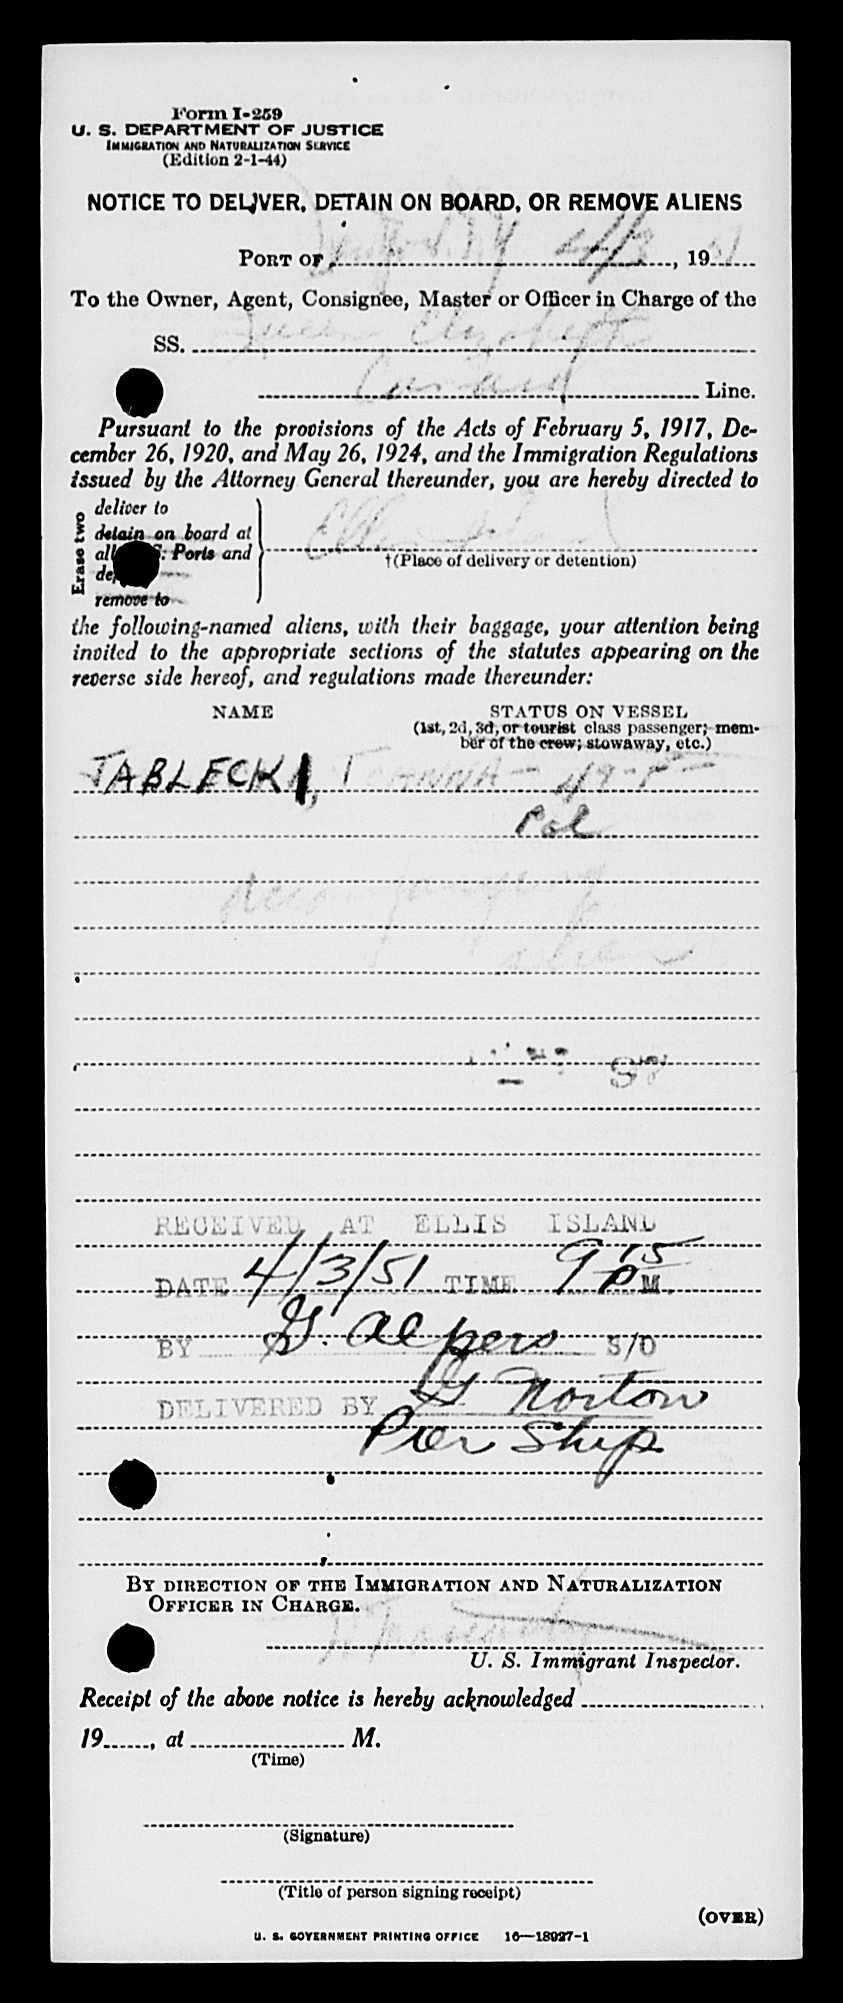 Form I-259
U. S. DEPARTMENT OF JUSTICE
IMMIGRATION AND NATURALIZATION SERVICE
(Edition 2-1-44)
NOTICE TO DELIVER, DETAIN ON BOARD, OR REMOVE ALIENS
PORT OF 4/3, 1951
To the Owner, Agent, Consignee, Master or Officer in Charge of the
SS. Queen Elizabeth
Cunard Line.
Pursuant to the provisions of the Acts of February 5, 1917, De-
cember 26, 1920, and May 26, 1924, and the Immigration Regulations
issued by the Attorney General thereunder, you are hereby directed to
Erase two
deliver to
detain on board at
all U. S. Ports and
remove to
Ellis Island
†(Place of delivery or detention)
the following-named aliens, with their baggage, your attention being
invited to the appropriate sections of the statutes appearing on the
reverse side hereof, and regulations made thereunder:
NAME STATUS ON VESSEL
(1st, 2d, 3d, or tourist class passenger; mem-
ber of the crew; stowaway, etc.)
TABLECKI, JOANNA - 49 - F -
Pol
accompanying
alien
RECEIVED AT ELLIS ISLAND
DATE 4/3/51 TIME 9 15 P M.
BY G. Alpers S/O
DELIVERED BY G Norton
Pier Ship
BY DIRECTION OF THE IMMIGRATION AND NATURALIZATION
OFFICER IN CHARGE.
U. S. Immigrant Inspector.
Receipt of the above notice is hereby acknowledged
19, at M.
(Time)
(Signature)
(Title of person signing receipt)
(OVER)
U. S. GOVERNMENT PRINTING OFFICE 16—18927-1